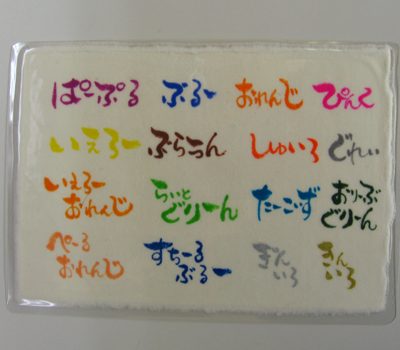 ぱーぷる ぶるー おれんじ ぴんく
いえろー ぶらうん しゅいろ ぐれい
いえろー
おれんじ
らいと
ぐりーん
たーこいず
おりーぶ
ぐりーん
ぺーる
おれんじ
すちーる
ぶるー
ぎん
いろ
きん
いろ